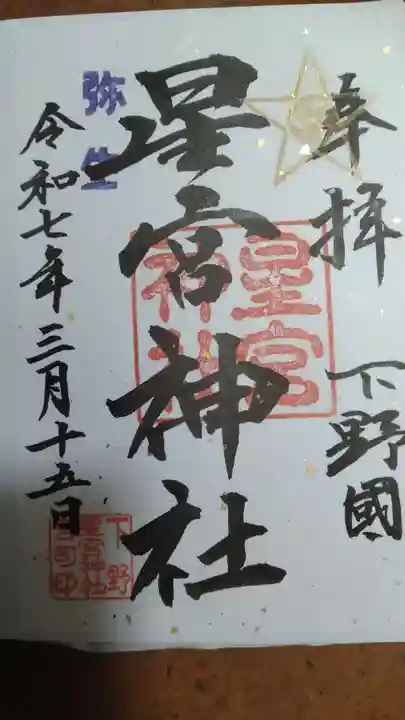 奉拝 下野國
星宮神社
星宮
神社
弥生
令和七年三月十五日
下野
星宮神社
宮司印